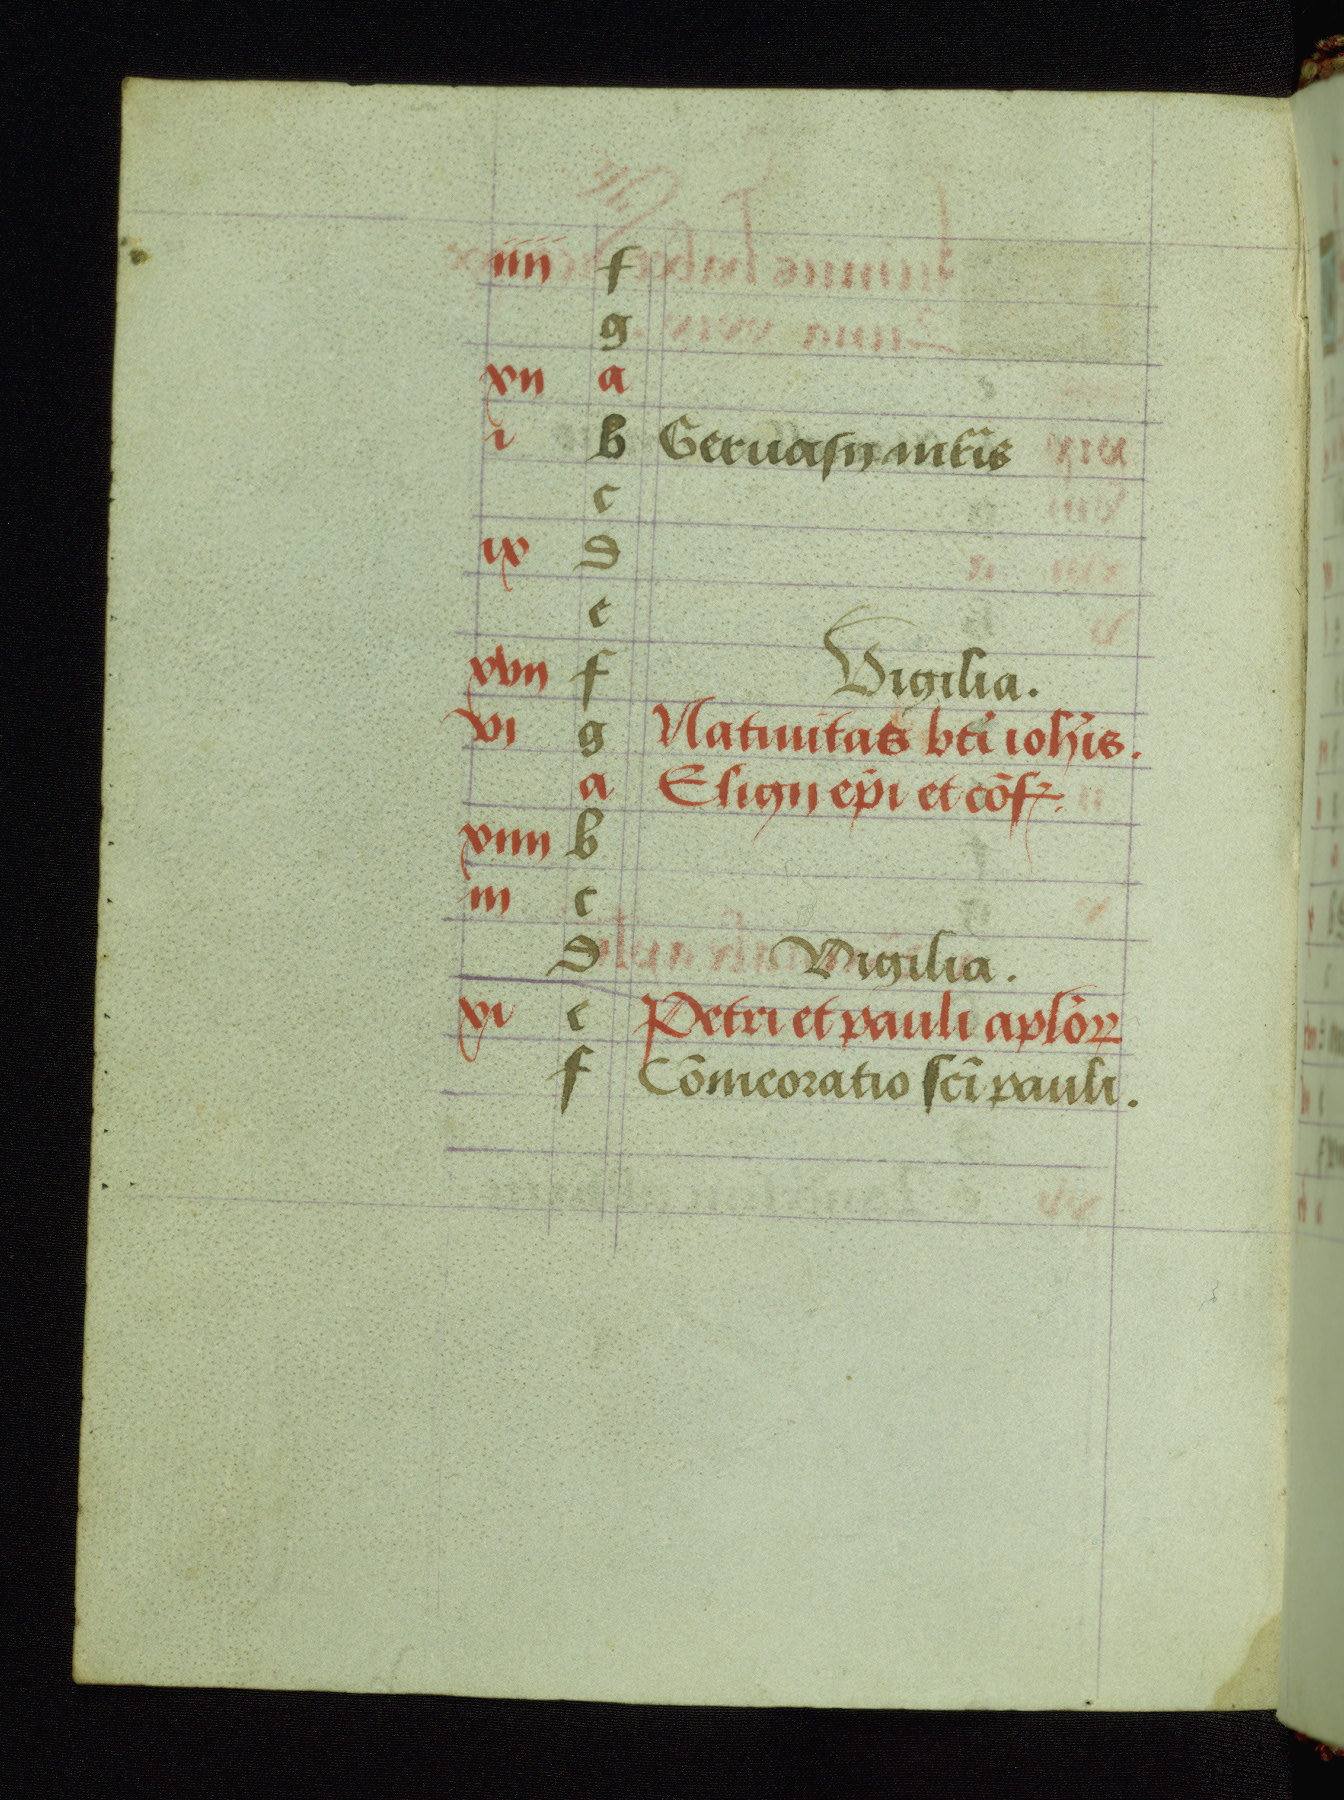 iiii f
g
xii a
i b Geruasii mr̄is
c
ix d
e
xvii f Vigilia.
vi g Natiuitas bt̄i ioh̄is.
a Eligii ep̄i et cōf.
xiiii b
iii c
d Vigilia.
xi e Petri et pauli aplōꝝ
f Cōmeoratio sc̄i pauli.